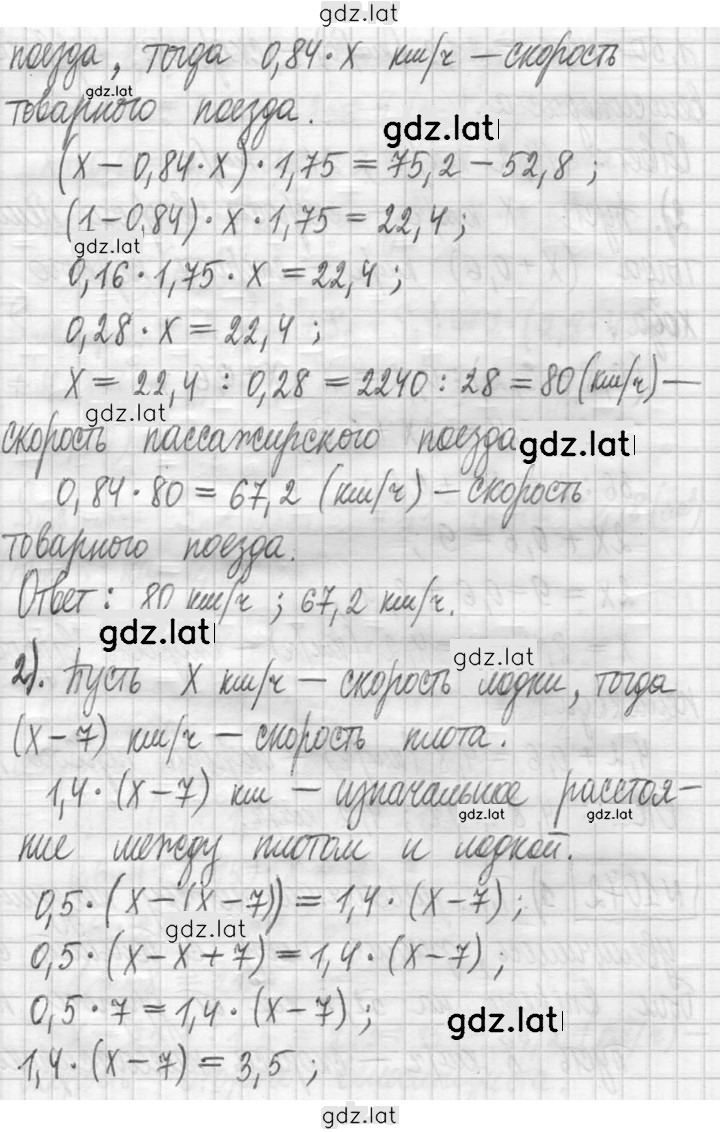 gdz.lat
поезда, тогда 0,84·x км/ч – скорость
gdz.lat
товарного поезда.
gdz.lat
(x – 0,84·x)·1,75 = 75,2 – 52,8 ;
(1 – 0,84)·x·1,75 = 22,4 ;
gdz.lat
0,16·1,75·x = 22,4 ;
0,28·x = 22,4 ;
x = 22,4 : 0,28 = 2240 : 28 = 80 (км/ч) –
gdz.lat
скорость пассажирского поезда
gdz.lat
0,84·80 = 67,2 (км/ч) – скорость
товарного поезда.
Ответ: 80 км/ч ; 67,2 км/ч.
gdz.lat
gdz.lat
2). Пусть x км/ч – скорость лодки, тогда
(x – 7) км/ч – скорость плота.
1,4·(x – 7) км – изначальное расстоя–
gdz.lat gdz.lat
ние между плотом и лодкой.
0,5·(x – (x – 7)) = 1,4·(x – 7) ;
gdz.lat
0,5·(x – x + 7) = 1,4·(x – 7) ;
0,5·7 = 1,4·(x – 7) ;
gdz.lat
1,4·(x – 7) = 3,5 ;
gdz.lat